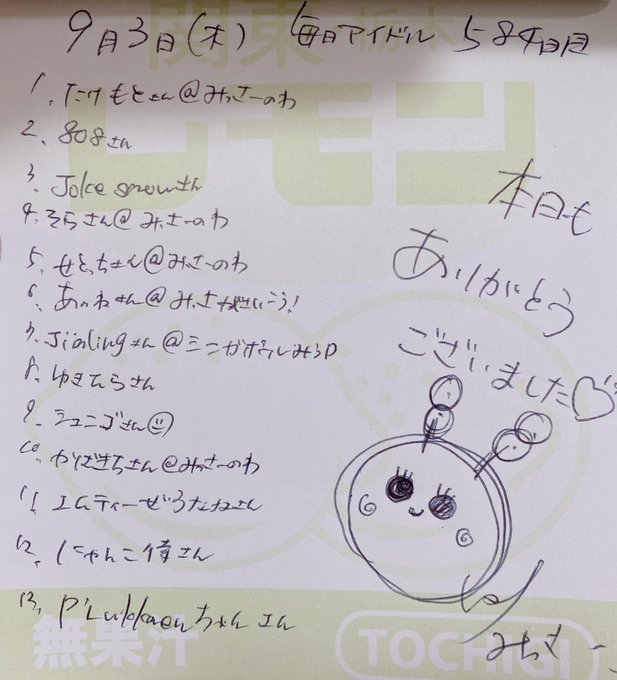 9月3日(木) 毎日アイドル 584日目
関東 栃木
レモン
1. たけもとさん@みっさーのわ
2. 808さん
3. Joke snowさん
4. そらさん@みっさーのわ
5. せとっちさん@みっさーのわ
6. あのねさん@みっさがさいこう!
7. Jiānlingさん@ミニガオウルみうD
8. ゆきむらさん
9. ジュニゴさん
10. かりざきちさん@みっさーのわ
11. エムティーぜろななさん
12. にゃんこ侍さん
13. P'Lukkaenちゃんさん
本日も
ありがとう
ございました♡
みっさー
無果汁
TOCHIGI